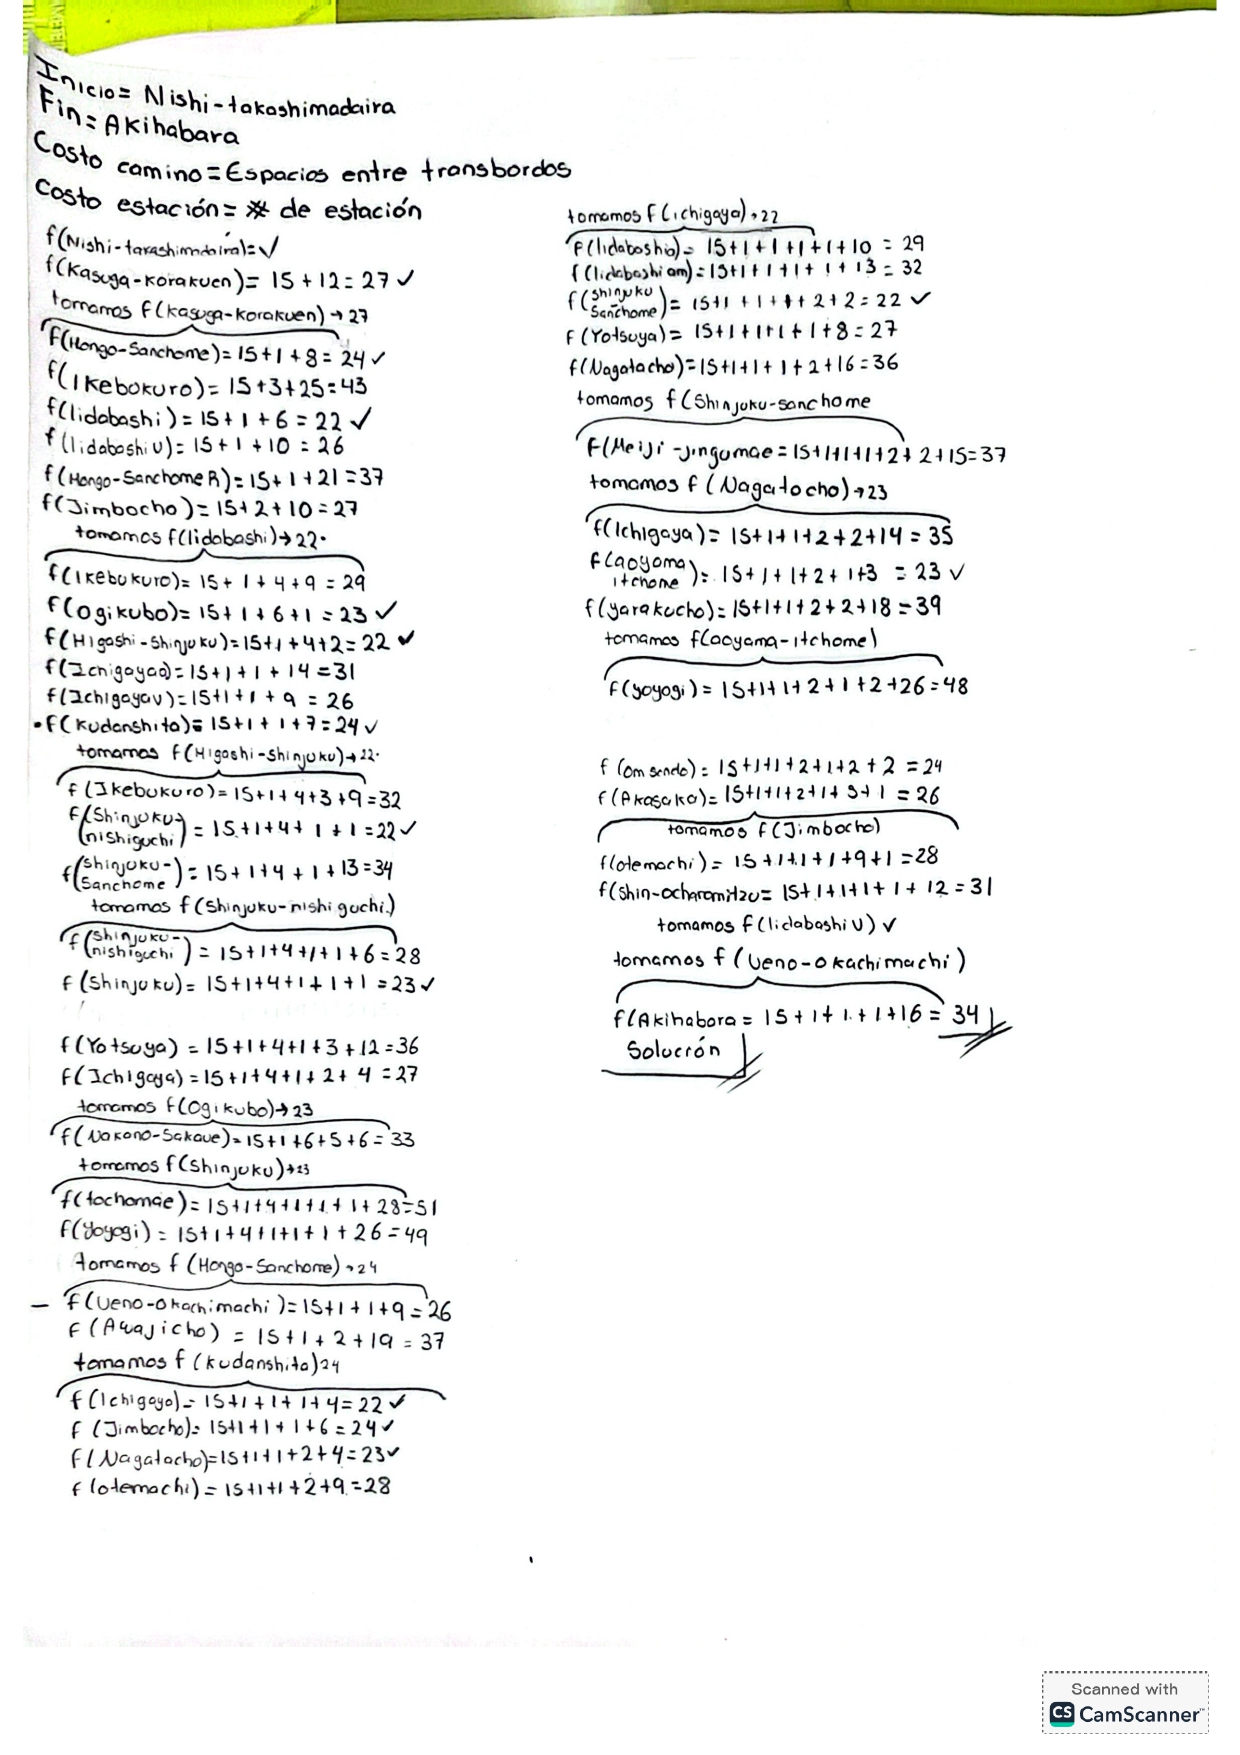 Inicio= Nishi-takashimadaira
Fin= Akihabara
Costo camino= Espacios entre transbordos
Costo estación= # de estación
f(Nishi-takashimadaira)=✓
f(Kasuga-Korakuen)= 15+12=27 ✓
tomamos f(Kasuga-Korakuen)→27
f(Hongo-Sanchome)=15+1+8=24✓
f(Ikebokuro)=15+3+25=43
f(Iidabashi)=15+1+6=22 ✓
f(Iidabashi U)=15+1+10=26
f(Hongo-Sanchome R)=15+1+21=37
f(Jimbocho)=15+2+10=27
tomamos f(Iidabashi)→22·
f(Ikebukuro)=15+1+4+9=29
f(Ogikubo)=15+1+6+1=23 ✓
f(Higashi-Shinjuku)=15+1+4+2=22 ✓
f(Ichigayaa)=15+1+1+14=31
f(Ichigayav)=15+1+1+9=26
•f(Kudanshita)=15+1+1+7=24✓
tomamos f(Higashi-Shinjuku)→22·
f(Ikebukuro)=15+1+4+3+9=32
f(Shinjuku-nishiguchi)=15+1+4+1+1=22✓
f(Shinjuku-Sanchome)=15+1+4+1+13=34
tomamos f(Shinjuku-nishiguchi)
f(Shinjuku-nishiguchi)=15+1+4+1+1+6=28
f(Shinjuku)=15+1+4+1+1+1=23✓
f(Yotsuya)=15+1+4+1+3+12=36
f(Ichigaya)=15+1+4+1+2+4=27
tomamos f(Ogikubo)→23
f(Nakano-Sakaue)=15+1+6+5+6=33
tomamos f(Shinjuku)→23
f(tochomae)=15+1+4+1+1+1+28=51
f(Yoyogi)=15+1+4+1+1+1+26=49
tomamos f(Hongo-Sanchome)→24
– f(Ueno-Okachimachi)=15+1+1+9=26
f(Awajicho)=15+1+2+19=37
tomamos f(kudanshita)24
f(Ichigaya)=15+1+1+1+4=22✓
f(Jimbocho)=15+1+1+1+6=24✓
f(Nagatacho)=15+1+1+2+4=23✓
f(otemachi)=15+1+1+2+9=28
tomamos f(ichigaya)→22
f(Iidaboshio)=15+1+1+1+1+10=29
f(Iidabashi am)=15+1+1+1+1+13=32
f(Shinjuku Sanchome)=15+1+1+1+2+2=22 ✓
f(Yotsuya)=15+1+1+1+1+8=27
f(Nagatacho)=15+1+1+1+2+16=36
tomamos f(Shinjuku-sanchome
f(Meiji-Jingumae=15+1+1+1+2+2+15=37
tomamos f(Nagatocho)→23
f(Ichigaya)=15+1+1+2+2+14=35
f(aoyoma itchome)=15+1+1+2+1+3=23 ✓
f(yarakucho)=15+1+1+2+2+18=39
tomamos f(aoyama-itchome)
f(yoyogi)=15+1+1+2+1+2+26=48
f(omsendo)=15+1+1+2+1+2+2=24
f(Akasaka)=15+1+1+2+1+5+1=26
tomamos f(Jimbocho)
f(otemachi)=15+1+1+1+9+1=28
f(Shin-ocharomitzu=15+1+1+1+1+12=31
tomamos f(Iidabashi U) ✓
tomamos f(Ueno-Okachimachi)
f(Akihabara=15+1+1+1+16=34
Solución
Scanned with
CS CamScanner